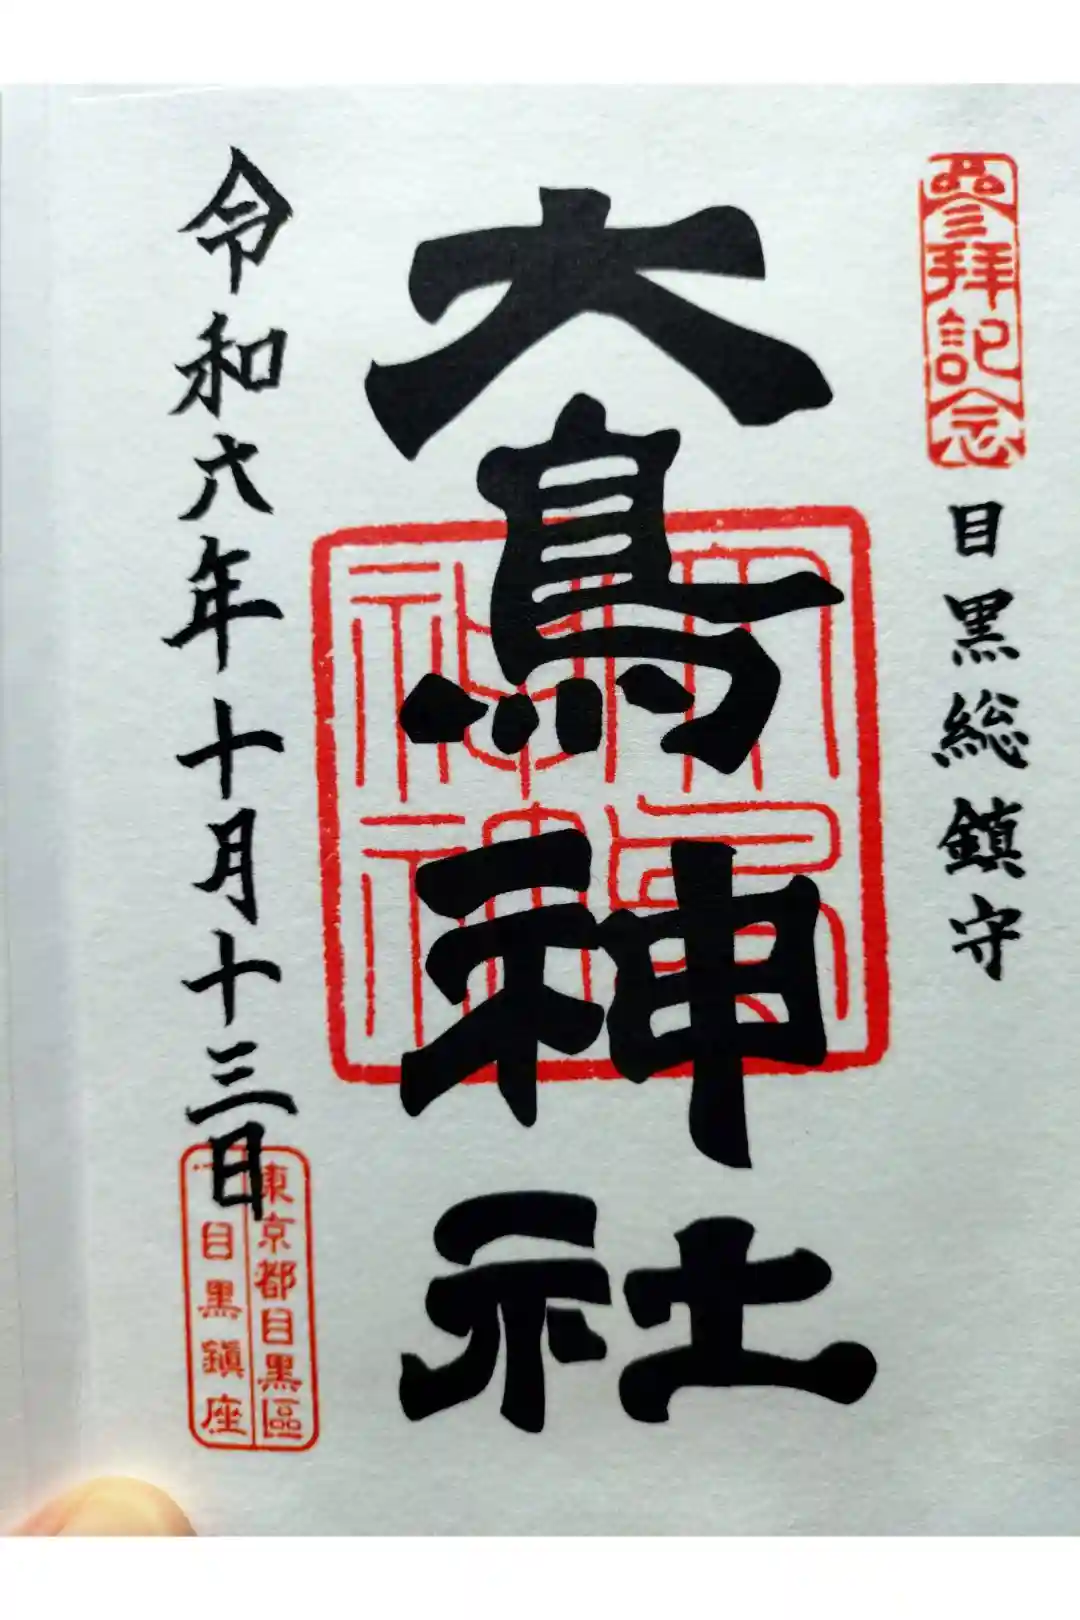 參拝記念
目黒総鎮守
大鳥神社
大鳥神社
令和六年十月十三日
東京都目黒區
下目黒鎮座